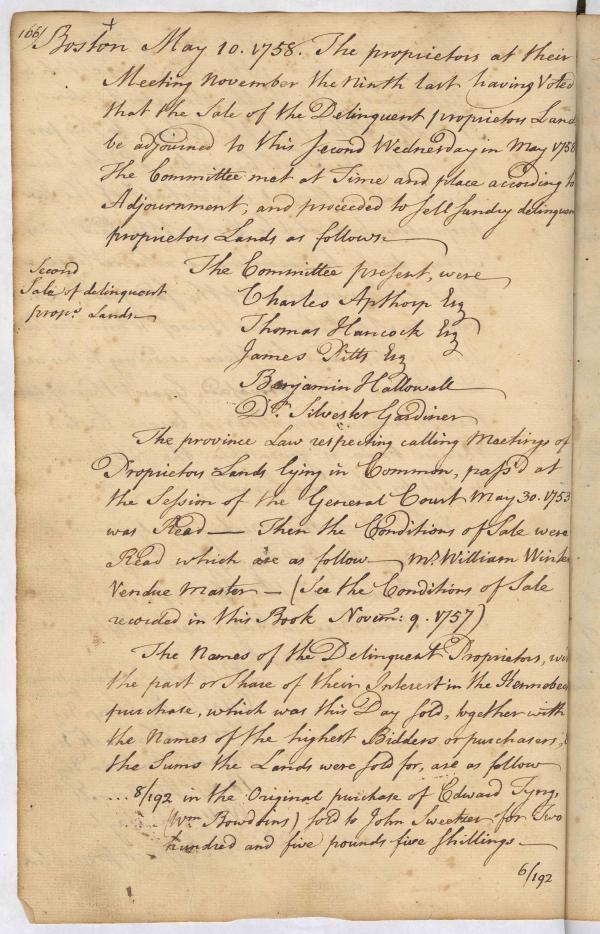 166/ Boston May 10. 1758. The proprietors at their
Meeting November the Ninth last having Voted
that the Sale of the Delinquent proprietors Land
be adjourned to this Second Wednesday in May 1758
The Committee met at Time and place according to
Adjournment, and proceeded to sell sundry delinquen
proprietors Lands as follows
Second
Sale of delinquent
props. Lands
The Committee present, were
Charles Apthorp Esq
Thomas Hancock Esq
James Pitts Esq
Benjamin Hallowell
Dr. Silvester Gardiner
The province Law respecting calling Meetings of
Proprietors Lands lying in Common, pass'd at
the Session of the General Court May 30. 1753
was Read — Then the Conditions of Sale were
Read which are as follow — Mr. William Winter
Vendue Master — (See the Conditions of Sale
recorded in this Book Novem: 9. 1757)
The Names of the Delinquent Proprietors, wi
the part or Share of their Interest in the Kennebec
purchase, which was this Day sold, together with
the Names of the highest Bidders or purchasers,
the Sums the Lands were sold for, are as follow
... 8/192 in the Original purchase of Edward Tyng,
(Wm Bowdoins) sold to John Sweetser for Two
hundred and five pounds five shillings —
6/192